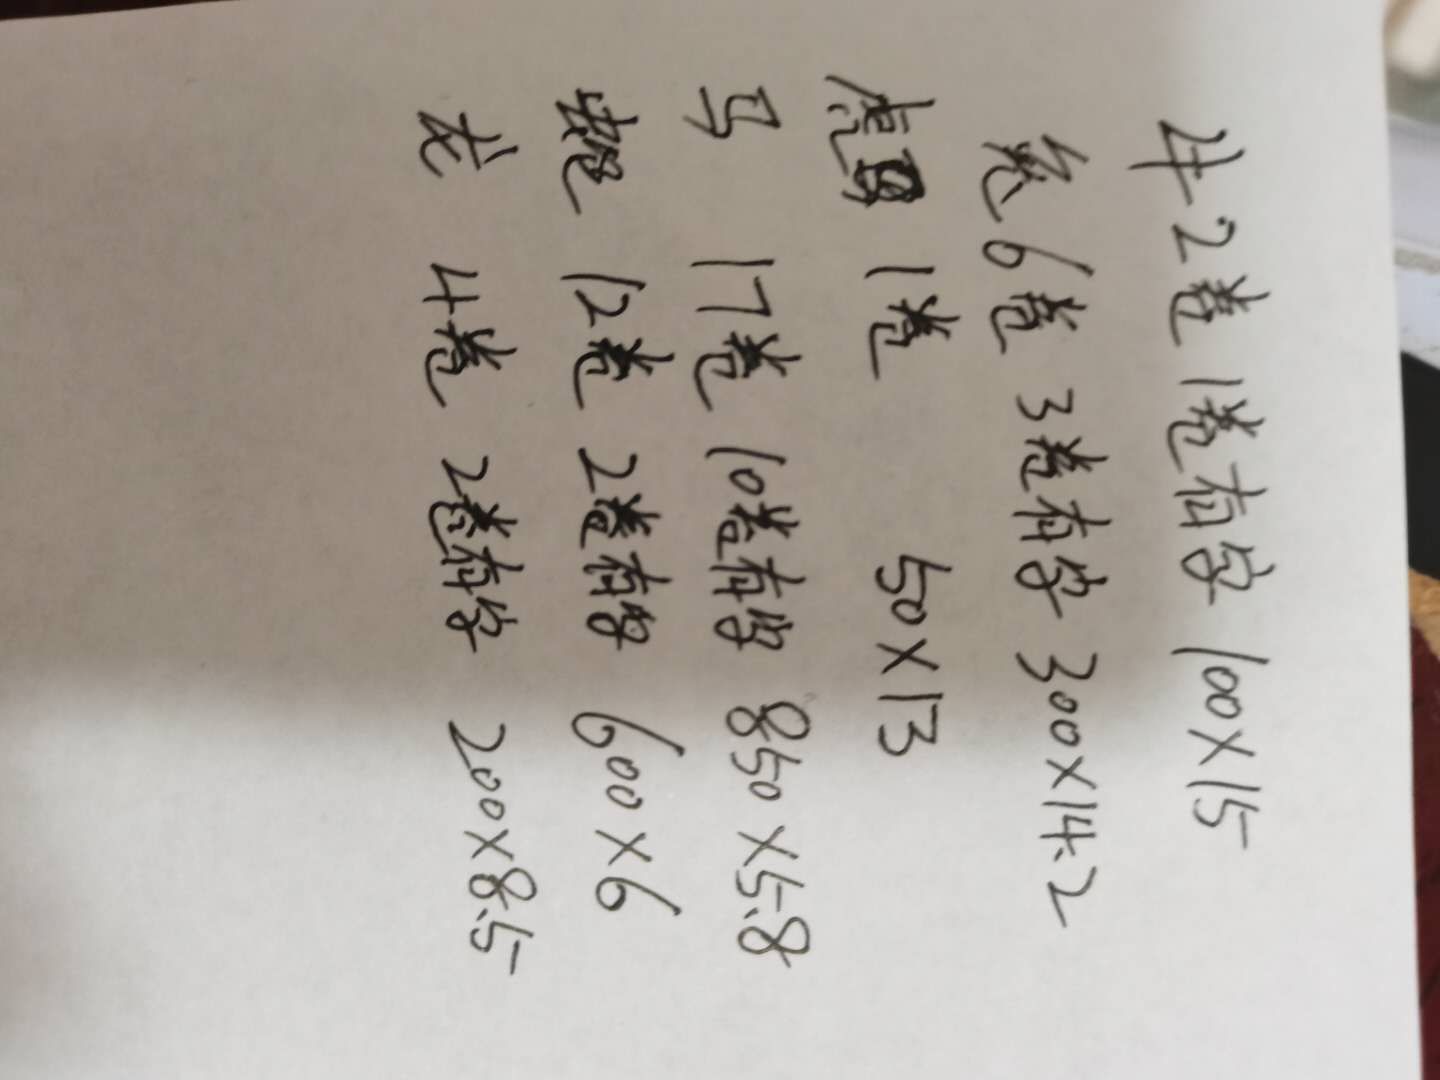 牛2卷1卷有字 100×15
兔6卷 3卷有字 300×14.2
虎 1卷 50×13
马 17卷 10卷有字 850×5.8
蛇 12卷 2卷有字 600×6
龙 4卷 2卷有字 200×8.5